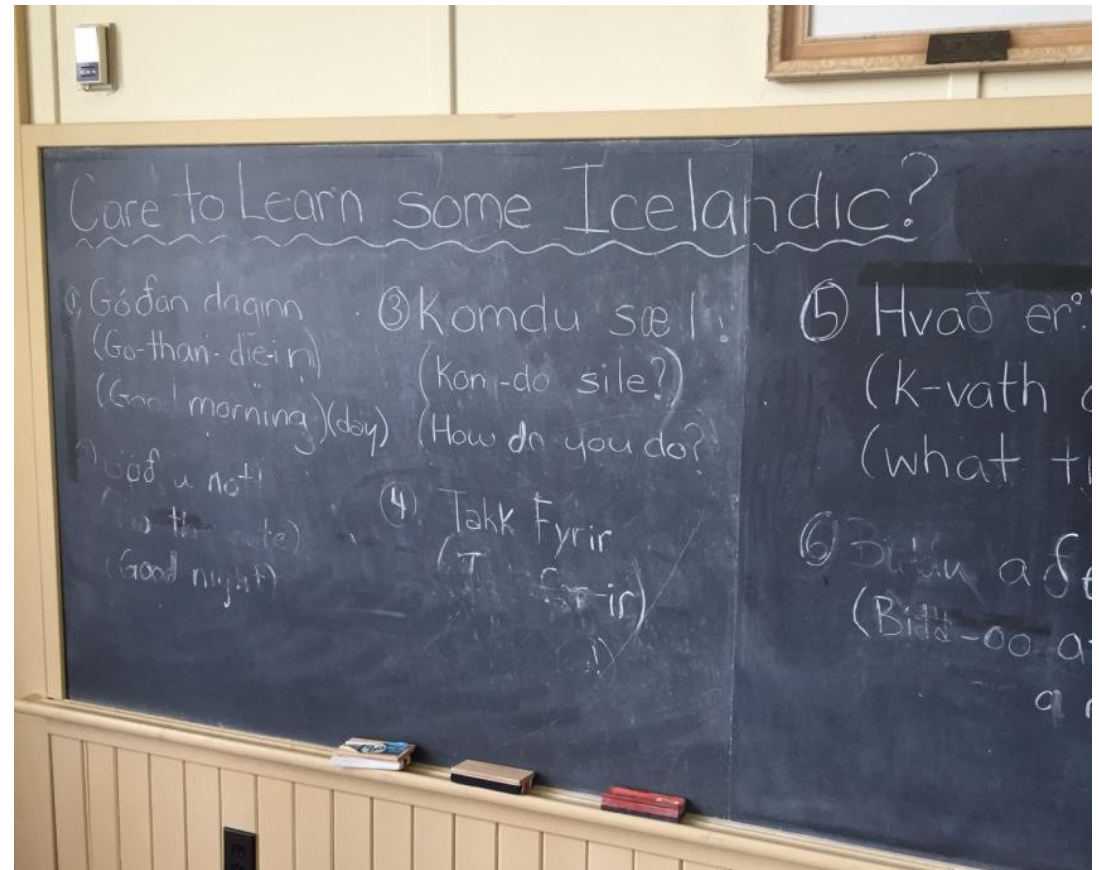 Care to Learn some Icelandic?
① Góðan daginn
(Go-than-die-in)
(Good morning)(day)
(Good night)
③ Komdu sæl!
(Kon-do sile?)
(How do you do?
④ Takk Fyrir
⑤ Hvað er
(k-vath
(what
⑥
(Bidd-oo
a